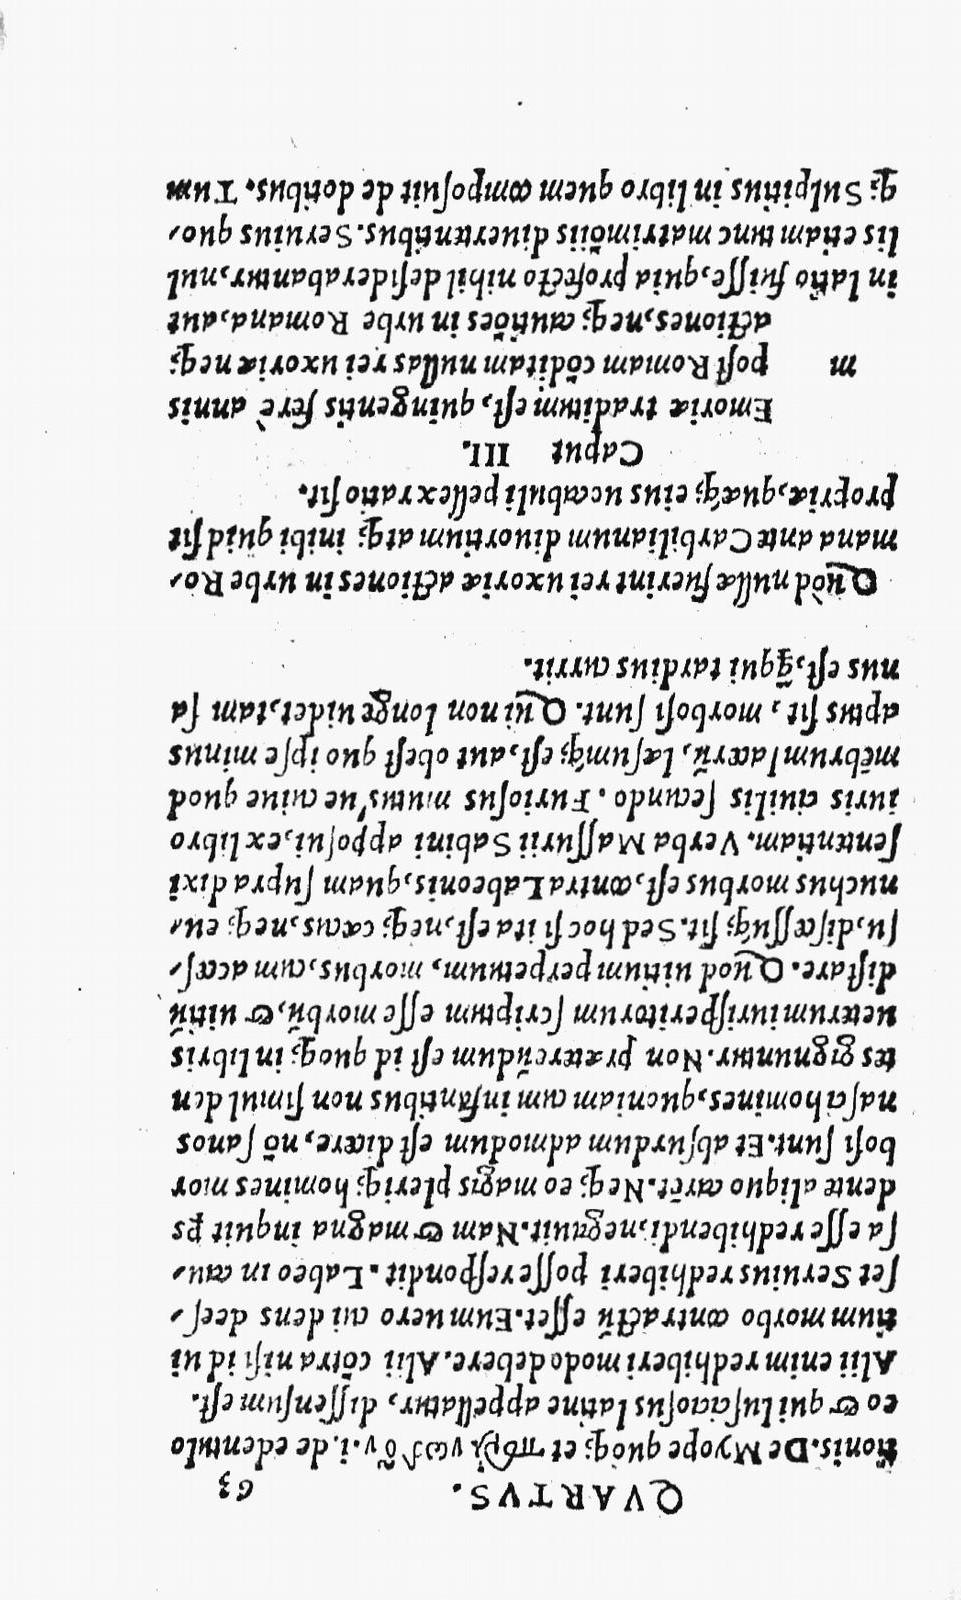 QVARTVS. 63
tionis. De Myope quoq; et πδρὶ νωδ͂ν. i. de edentulo
eo & qui lusciosus latine appellatur, dissensum est.
Alii enim redhiberi modo debere. Alii cōtra nisi id ui
tium morbo contractū esset. Eum uero cui dens dees/
set Seruius redhiberi posse respondit. Labeo in cau/
sa esse redhibendi, negauit. Nam & magna inquit ps
dente aliquo caret. Neq; eo magis pleriq; homines mor
bosi sunt. Et absurdum admodum est dicere, nō sanos
nasci homines, quoniam cum infantibus non simul den
tes gignuntur. Non prætereūdum est id quoq; in libris
ueterum iurisperitorum scriptum esse morbū, & uitiū
distare. Quod uitium perpetuum, morbus, cum acces/
su, discessuq́; sit. Sed hoc si ita est, neq; cæcus, neq; eu/
nuchus morbus est, contra Labeonis, quam supra dixi
sententiam. Verba Massurii Sabini apposui, ex libro
iuris ciuilis secundo. Furiosus mutus'ue cuiue quod
mēbrum lacerū, læsumq́; est, aut obest quo ipse minus
aptus sit, morbosi sunt. Qui non longe uidet, tam sa
nus est, q̄ qui tardius currit.
Quòd nullæ fuerint rei uxoriæ actiones in urbe Ro/
mana ante Carbilianum diuortium atq; inibi quid sit
propriæ, quæq́; eius uocabuli pellex ratio sit.
Caput III.
Emoriæ traditum est, quingentis ferè annis
m post Romam cōditam nullas rei uxoriæ neq;
actiones, neq; cautiōes in urbe Romana, aut
in latio fuisse, quia profecto nihil desiderabantur, nul
lis etiam tunc matrimōiis diuertentibus. Seruius quo/
q; Sulpitius in libro quem composuit de dotibus. Tum